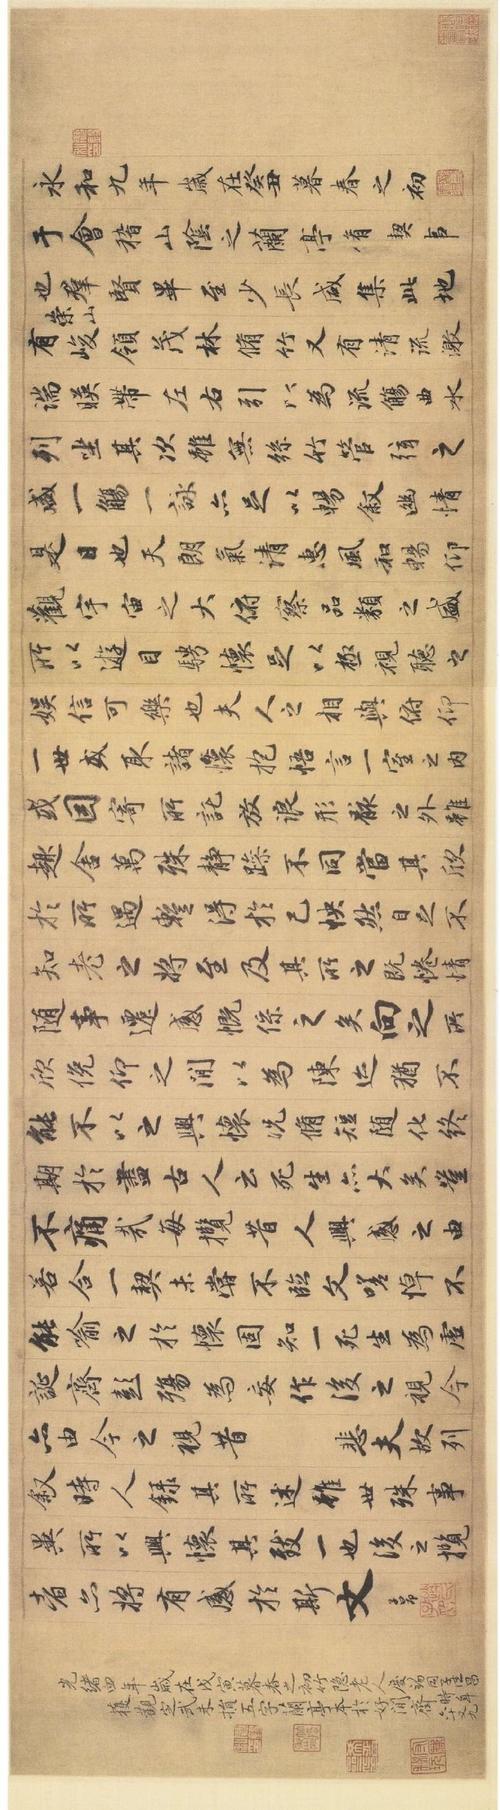 永和九年歲在癸丑暮春之初
于會稽山陰之蘭亭脩禊事
也羣賢畢至少長咸集此地
有崇山峻領茂林脩竹又有清流激
湍暎帶左右引以為流觴曲水
列坐其次雖無絲竹管弦之
盛一觴一詠亦足以暢叙幽情
是日也天朗氣清惠風和暢仰
觀宇宙之大俯察品類之盛
所以遊目騁懷足以極視聽之
娛信可樂也夫人之相與俯仰
一世或取諸懷抱悟言一室之內
或因寄所託放浪形骸之外雖
趣舍萬殊靜躁不同當其欣
於所遇暫得於己怏然自足不
知老之將至及其所之既惓情
隨事遷感慨係之矣向之所
欣俛仰之閒以為陳迹猶不
能不以之興懷況脩短隨化終
期於盡古人云死生亦大矣豈
不痛哉每攬昔人興感之由
若合一契未嘗不臨文嗟悼不
能喻之於懷固知一死生為虛
誕齊彭殤為妄作後之視今
亦由今之視昔 悲夫故列
叙時人錄其所述雖世殊事
異所以興懷其致一也後之攬
者亦將有感於斯文
光緒四年歲在戊寅暮春之初竹隱老人
復觀定武未損五字蘭亭本於好閒齋